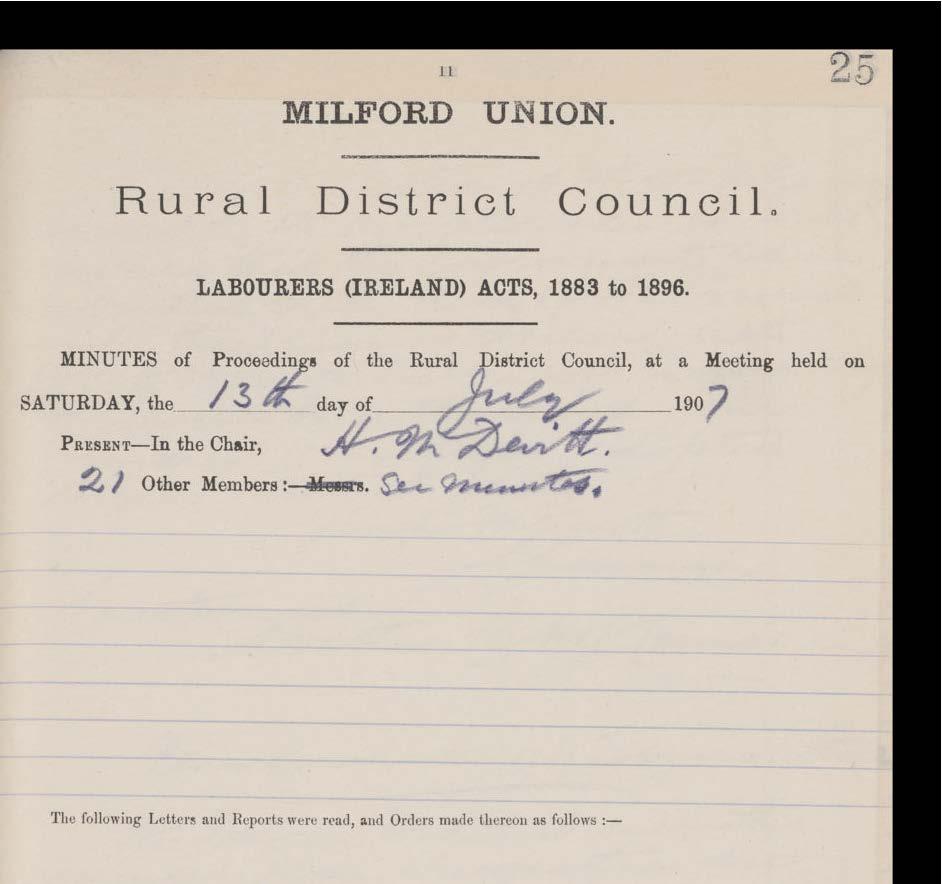 11
25
MILFORD UNION.
Rural District Council.
LABOURERS (IRELAND) ACTS, 1883 to 1896.
MINUTES of Proceedings of the Rural District Council, at a Meeting held on
SATURDAY, the 13th day of July 1907
PRESENT—In the Chair, H. McDevitt.
21 Other Members:—Messrs. See minutes.
The following Letters and Reports were read, and Orders made thereon as follows :—